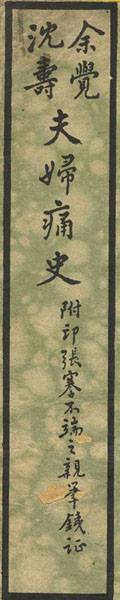 余覺
沈壽
夫婦痛史
附印張謇不端之親筆鐵証